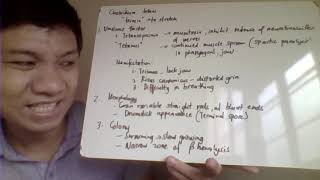 Clostridium tetani
"tetanus" - to stretch
1. Virulence factor
Tetanospasmin → neurotoxin, inhibit release of neurotransmitter
of nerves
"Tetanus" → continued muscle spasm (spastic paralysis)
in jaw
Manifestation
1. Trismus - lock jaw
2. Risus sardonicus - distorted grin
3. Difficulty in breathing
2. Morphology
- Gram variable straight rods, w/ blunt ends
- Drumstick appearance (Terminal spore)
3. Colony
- Swarming
- Narrow zone of β hemolysis